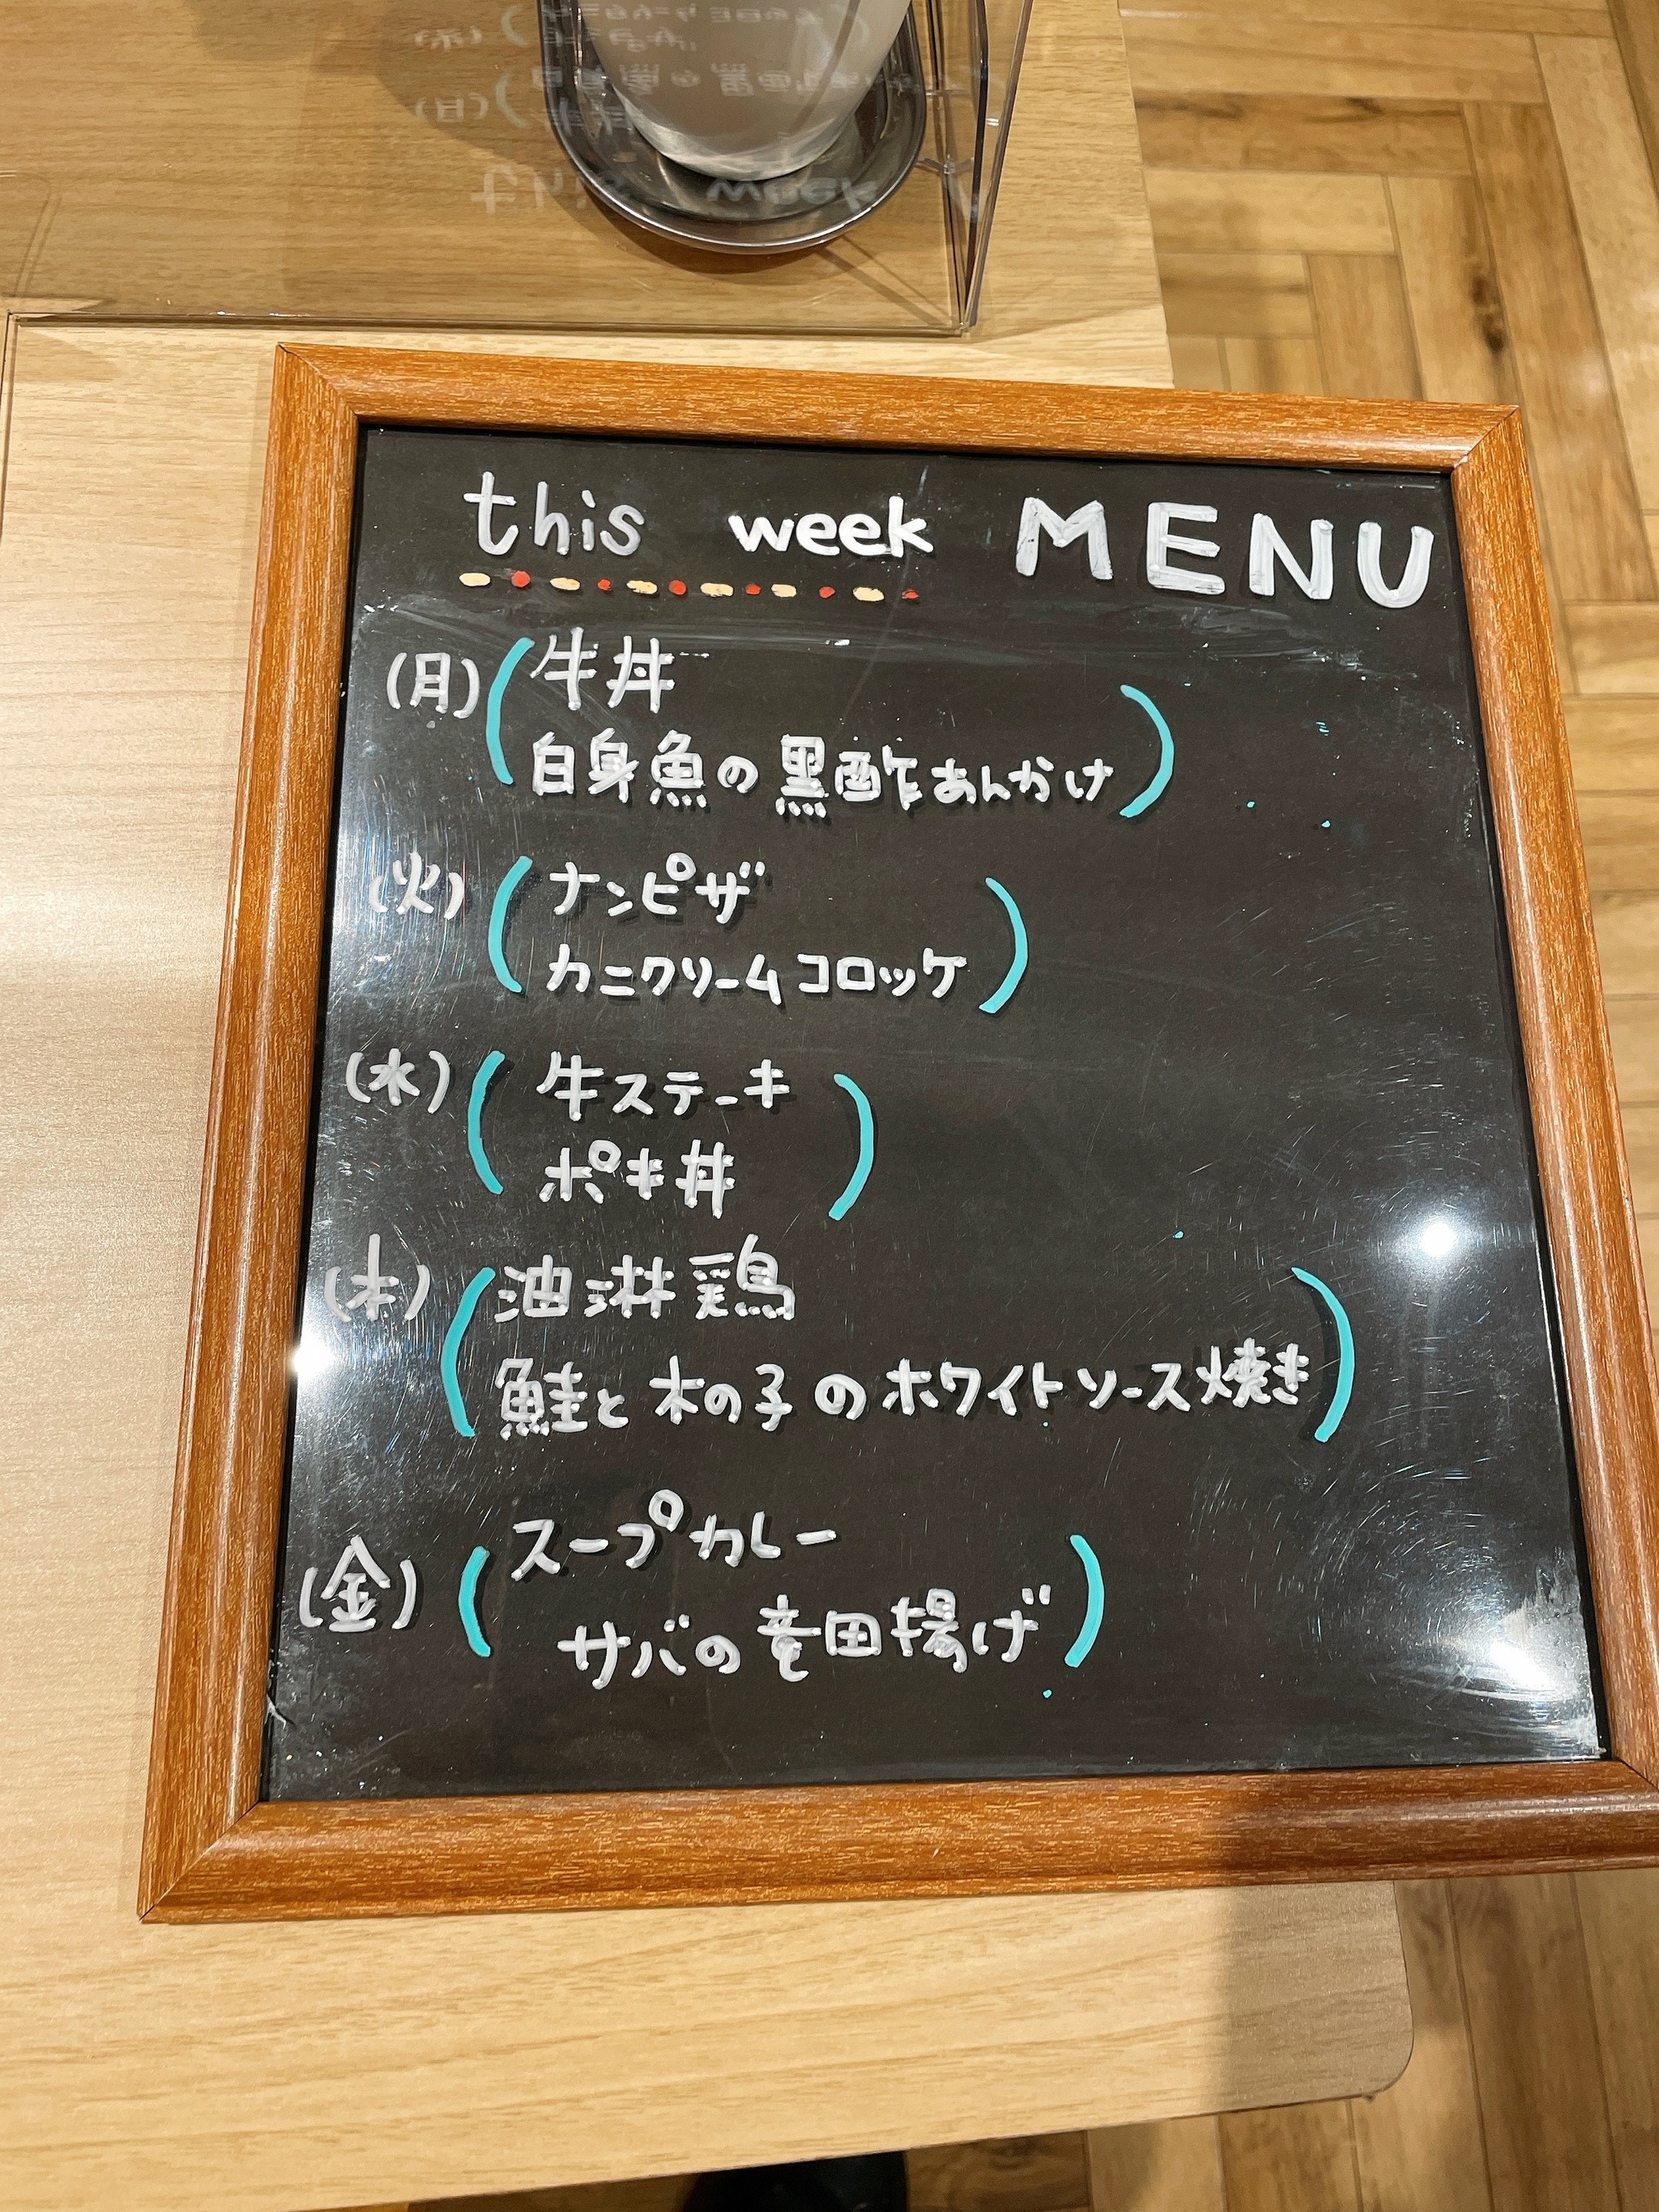 this week MENU
(月) 牛丼
白身魚の黒酢あんかけ
(火) ナンピザ
カニクリームコロッケ
(水) 牛ステーキ
ポキ丼
(木) 油淋鶏
鮭と木の子のホワイトソース焼き
(金) スープカレー
サバの竜田揚げ